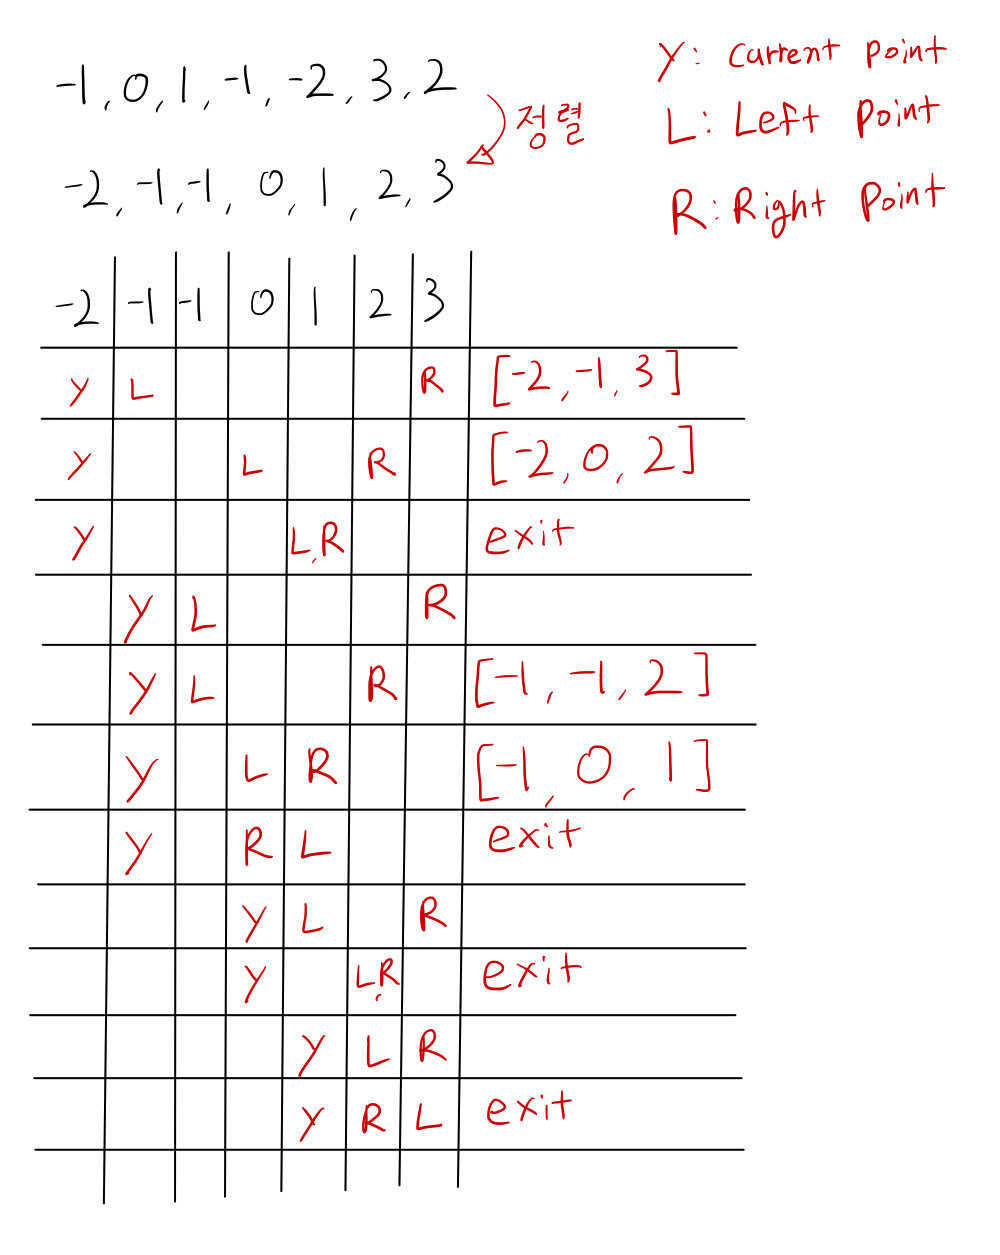 -1, 0, 1, -1, -2, 3, 2
정렬
-2, -1, -1, 0, 1, 2, 3
Y: Current point
L: Left Point
R: Right Point
-2 -1 -1 0 1 2 3
Y L R [-2, -1, 3]
Y L R [-2, 0, 2]
Y L,R exit
Y L R
Y L R [-1, -1, 2]
Y L R [-1, 0, 1]
Y R L exit
Y L R
Y L,R exit
Y L R
Y R L exit